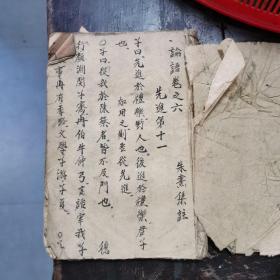 論語卷之六
朱熹集註
先進第十一
子曰先進於禮樂野人也後進於禮樂君子
也　如用之則吾從先進
〇子曰從我於陳蔡者皆不及門也　德
行顏淵閔子騫冉伯牛仲弓言語宰我子
冉有季路文學子游子夏　〇子